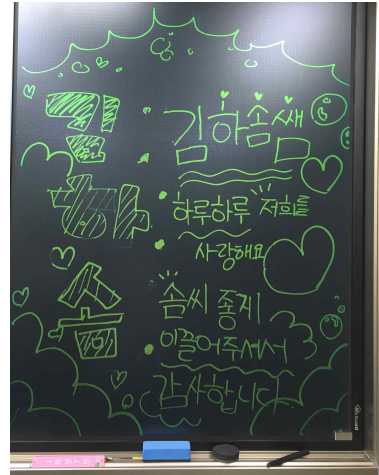 김 : 김하솜쌤
하 : 하루하루 저희를
사랑해요
솜 : 솜씨 좋게
이끌어주셔서
감사합니다.